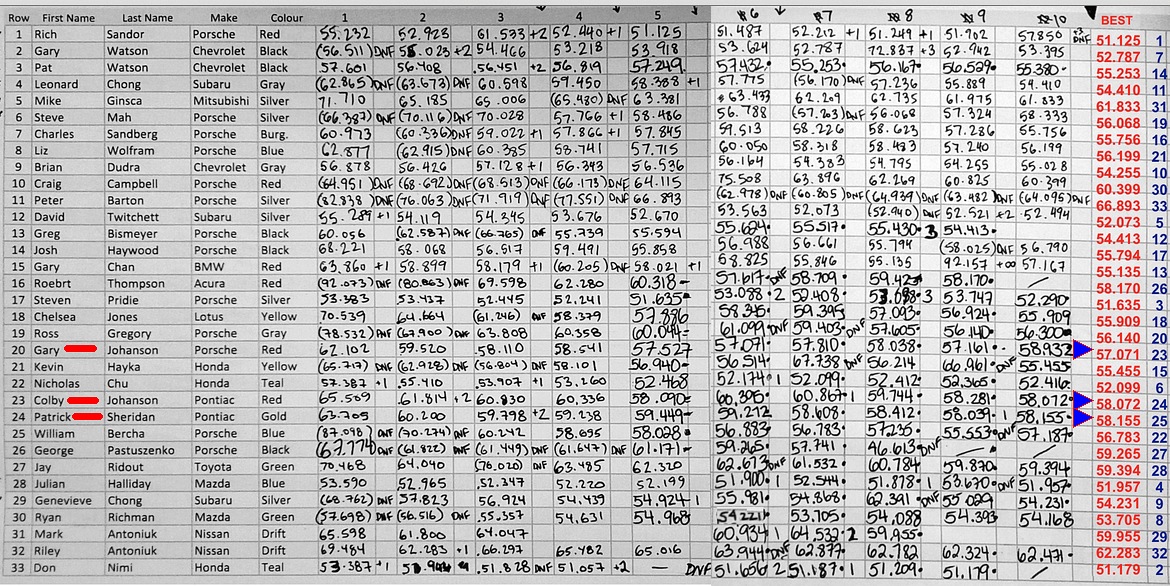 Row First Name Last Name Make Colour 1 2 3 4 5 6 7 8 9 10 BEST
1 Rich Sandor Porsche Red 55.232 52.923 61.533 +2 52.440 +1 51.125 51.487 52.212 +1 51.249 +1 51.902 57.850 +3 DNF 51.125 1
2 Gary Watson Chevrolet Black (56.511) DNF 55.023 +2 54.466 53.218 53.918 53.624 52.787 72.837 +3 52.942 53.395 52.787 7
3 Pat Watson Chevrolet Black 57.601 56.408 56.451 +2 56.819 57.249 57.432 55.253 56.167 56.529 55.380 55.253 14
4 Leonard Chong Subaru Gray (62.865) DNF (63.673) DNF 60.598 59.450 58.388 +1 57.775 (56.170) DNF 57.236 55.889 54.410 54.410 11
5 Mike Ginsca Mitsubishi Silver 71.710 65.185 65.006 (65.480) DNF 63.381 63.477 62.209 62.735 61.975 61.833 61.833 31
6 Steve Mah Porsche Silver (66.387) DNF (70.116) DNF 70.028 57.766 +1 58.486 56.788 (57.263) DNF 56.068 57.324 58.333 56.068 19
7 Charles Sandberg Porsche Burg. 60.973 (60.336) DNF 59.022 +1 57.866 +1 57.845 59.513 58.226 58.623 57.286 55.756 55.756 16
8 Liz Wolfram Porsche Blue 62.877 (62.915) DNF 60.385 58.741 57.715 60.050 58.318 58.483 57.240 56.199 56.199 21
9 Brian Dudra Chevrolet Gray 56.878 56.426 57.128 +1 56.343 56.536 56.164 54.383 54.795 54.255 55.028 54.255 10
10 Craig Campbell Porsche Red (64.951) DNF (68.692) DNF (68.513) DNF (66.173) DNF 64.115 75.508 63.896 62.269 60.825 60.399 60.399 30
11 Peter Barton Porsche Silver (82.838) DNF (76.063) DNF (71.719) DNF (77.551) DNF 66.893 (62.978) DNF (60.805) DNF (64.939) DNF (63.482) DNF (64.095) DNF 66.893 33
12 David Twitchett Subaru Silver 55.289 +1 54.119 54.345 53.676 52.670 53.563 52.073 (52.940) DNF 52.521 +2 52.494 52.073 5
13 Greg Bismeyer Porsche Blue 60.056 (62.587) DNF (66.765) DNF 55.739 55.594 55.624 55.517 55.430 3 54.413 54.413 12
14 Josh Haywood Porsche Blue 68.221 58.068 56.517 59.491 55.858 56.988 56.661 55.794 (58.025) DNF 56.790 55.794 17
15 Gary Chan BMW Red 63.860 +1 58.899 58.179 +1 (60.205) DNF 58.021 +1 68.825 55.846 55.135 92.157 57.167 55.135 13
16 Roebrt Thompson Acura Red (92.073) DNF (80.863) DNF 69.598 62.280 60.318 57.617 DNF 58.709 59.423 58.170 58.170 26
17 Steven Pridie Porsche Silver 53.383 53.437 52.445 52.241 51.635 53.088 2 52.408 53.698 3 53.747 52.290 51.635 3
18 Chelsea Jones Lotus Yellow 70.539 64.664 (61.246) DNF 58.379 57.886 58.345 59.395 57.093 56.924 55.909 55.909 18
19 Ross Gregory Porsche Gray (78.532) DNF (67.900) DNF 63.808 60.358 60.044 61.099 DNF 59.403 DNF 57.605 56.140 56.300 56.140 20
20 Gary Johanson Porsche Red 62.102 59.520 58.110 58.541 57.527 57.071 57.810 58.038 57.161 58.932 57.071 23
21 Kevin Hayka Honda Yellow (65.717) DNF (62.928) DNF (56.804) DNF 58.101 56.940 56.514 67.738 DNF 56.214 66.961 DNF 55.455 55.455 15
22 Nicholas Chu Honda Teal 57.387 +1 55.410 53.907 +1 53.260 52.468 52.174 1 52.099 52.412 52.365 52.416 52.099 6
23 Colby Johanson Pontiac Red 65.509 61.814 +2 60.830 60.336 58.090 60.395 60.867 1 59.744 58.281 58.072 58.072 24
24 Patrick Sheridan Pontiac Gold 63.705 60.200 59.798 +2 59.238 59.449 59.212 58.608 58.412 58.039 1 58.155 58.155 25
25 William Bercha Porsche Blue (87.098) DNF (70.274) DNF 60.242 58.695 58.028 56.883 56.783 57.235 55.553 DNF 57.187 56.783 22
26 George Pastuszenko Porsche Black (67.774) DNF (61.822) DNF (61.449) DNF (61.647) DNF 61.171 59.265 57.741 46.613 DNF 59.265 27
27 Jay Ridout Toyota Green 70.468 64.040 (76.020) DNF 63.485 62.320 62.673 DNF 61.532 60.784 59.870 59.394 59.394 28
28 Julian Halliday Mazda Blue 53.590 52.965 52.347 52.220 52.199 51.900 1 52.544 51.878 1 53.670 DNF 51.957 51.957 4
29 Genevieve Chong Subaru Silver (68.762) DNF 57.823 56.924 54.439 54.924 1 55.981 54.868 62.391 DNF 55.029 54.231 54.231 9
30 Ryan Richman Mazda Green (57.698) DNF (56.516) DNF 55.357 54.631 54.968 54.221 53.705 54.088 54.393 54.168 53.705 8
31 Mark Antoniuk Nissan Drift 65.598 61.800 64.047 60.934 1 64.532 2 59.955 59.955 29
32 Riley Antoniuk Nissan Drift 69.484 62.283 +1 66.297 65.482 65.016 63.944 DNF 62.877 62.782 62.324 62.471 62.283 32
33 Don Nimi Honda Teal 53.387 +1 51.828 DNF 51.057 +2 — DNF 51.656 2 51.187 1 51.209 51.179 51.179 2